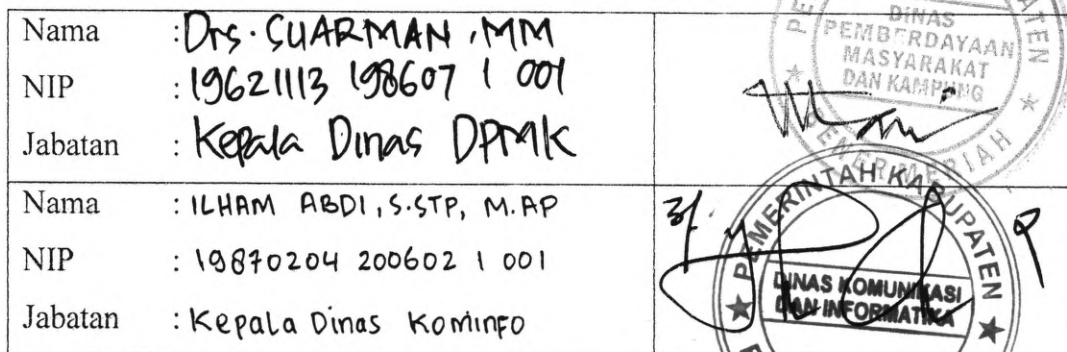 Nama : Drs. SUARMAN, MM
NIP : 19621113 198607 1 001
Jabatan : Kepala Dinas DPMK
DINAS
PEMBERDAYAAN
MASYARAKAT
DAN KAMPUNG
BENER MERIAH
Nama : ILHAM ABDI, S.STP, M.AP
NIP : 19870204 200602 1 001
Jabatan : Kepala Dinas Kominfo
PEMERINTAH KABUPATEN
DINAS KOMUNIKASI
DAN INFORMATIKA